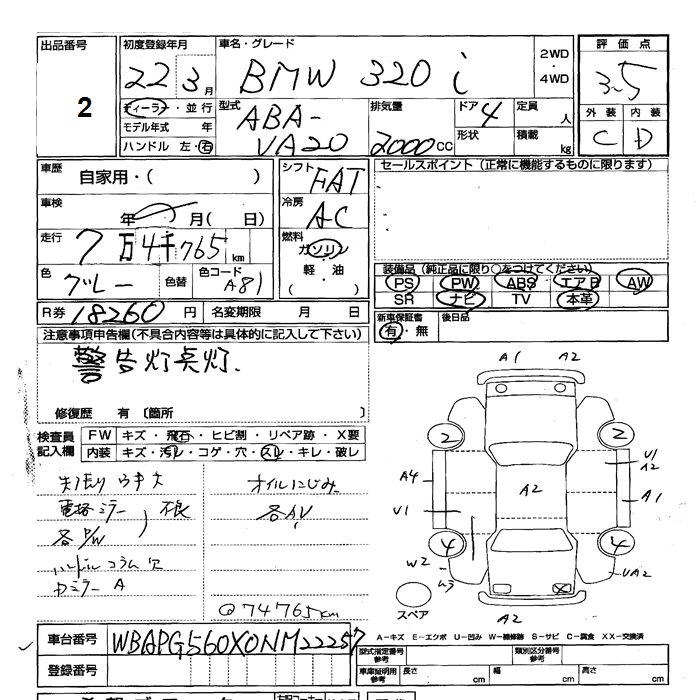 出品番号
2
初度登録年月
22 3月
車名・グレード
BMW 320i
2WD
・
4WD
評価点
3.5
外装 内装
C D
ディーラー・並行
モデル年式 年
ハンドル 左・右
型式
ABA-
VA20
排気量
2000cc
ドア 4
形状
定員 人
積載 kg
車歴
自家用・( )
車検
年 月( 日)
走行
7万4千765km
色
グレー
色替
色コード
A81
シフト
FAT
冷房
AC
燃料
ガソリン
軽・油
セールスポイント (正常に機能するものに限ります)
装備品 (純正品に限り○をつけてください)
PS PW ABS エアB AW
SR ナビ TV 本革
R券 18260 円
名変期限 月 日
新車保証書
有・無
後日品
注意事項申告欄(不具合内容等は具体的に記入して下さい)
警告灯点灯.
修復歴 有 〔箇所 〕
検査員
記入欄
FW キズ・飛石・ヒビ割・リペア跡・X要
内装 キズ・汚レ・コゲ・穴・スレ・キレ・破レ
天張り ウキ大
電格ミラー
各P/W
不良
ハンドル コラム 欠
Dミラー A
オイルにじみ
各AV
@74765km
A1 A2
2 2
A4
U1
A2
U1
A2
A1
4 4
W2
U3
UA2
X
A2
スペア
A−キズ E−エクボ U−凹み W−補修跡 S−サビ C−腐食 XX−交換済
車台番号 WBAPG560X0NM22257
登録番号
型式指定番号
参考
類別区分番号
参考
車庫証明用
参考
長さ cm
幅 cm
高さ cm